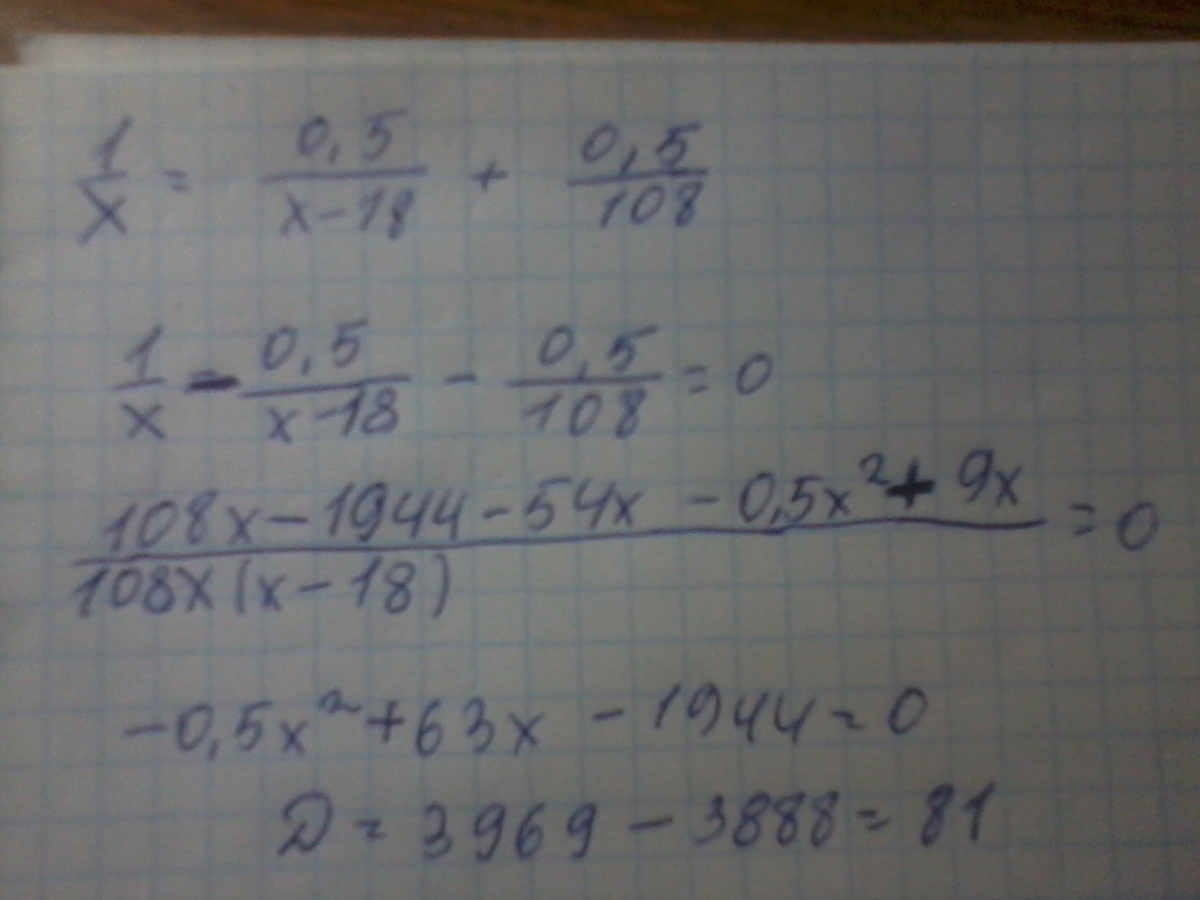 1/x = 0,5/(x-18) + 0,5/108
1/x - 0,5/(x-18) - 0,5/108 = 0
(108x - 1944 - 54x - 0,5x² + 9x)/(108x(x-18)) = 0
-0,5x² + 63x - 1944 = 0
D = 3969 - 3888 = 81